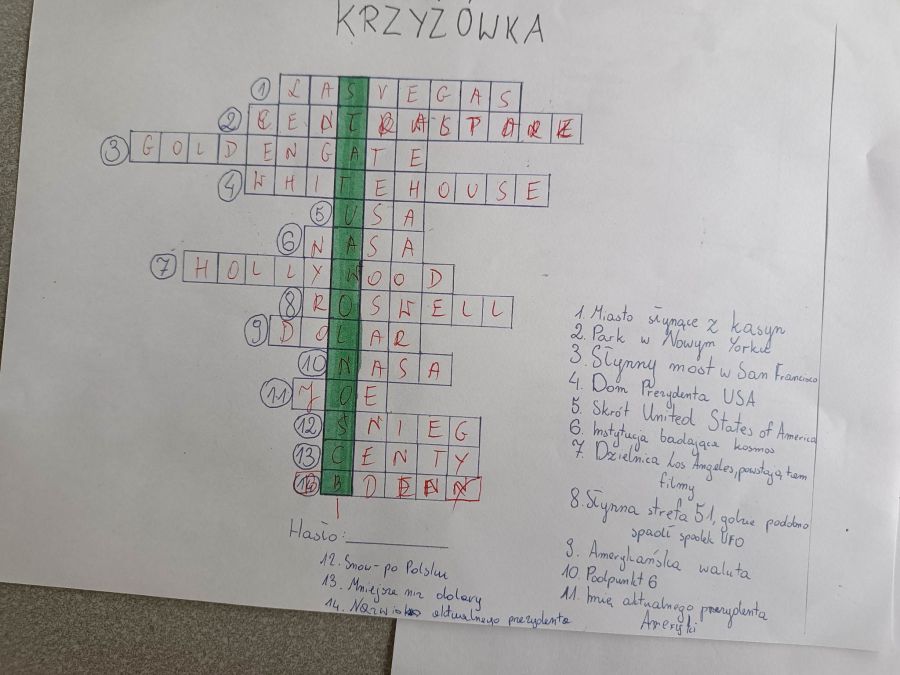 KRZYŻÓWKA
1 LAS VEGAS
2 CENTRALPARK
3 GOLDENGATE
4 WHITEHOUSE
5 USA
6 NASA
7 HOLLYWOOD
8 ROSWELL
9 DOLAR
10 NASA
11 JOE
12 ŚNIEG
13 CENTY
Hasło:
12. Snow - po Polsku
13. Mniejsze niż dolary
14. Nazwisko aktualnego prezydenta
1. Miasto słynące z kasyn
2. Park w Nowym Yorku
3. Słynny most w San Francisco
4. Dom Prezydenta USA
5. Skrót United States of America
6. Instytucja badająca kosmos
7. Dzielnica Los Angeles, powstają tam
filmy
8. Słynna strefa 51, gdzie podobno
spadł spodek UFO
9. Amerykańska waluta
10. Podpunkt 6
11. Imię aktualnego prezydenta
Ameryki